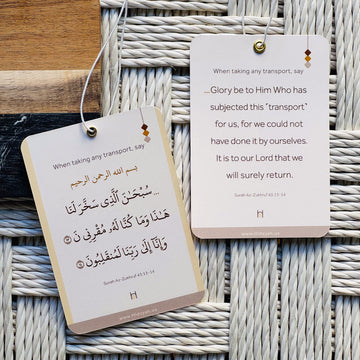 When taking any transport, say
بسم الله الرحمن الرحيم
... سُبْحَٰنَ ٱلَّذِى سَخَّرَ لَنَا
هَٰذَا وَمَا كُنَّا لَهُۥ مُقْرِنِينَ ١٣
وَإِنَّآ إِلَىٰ رَبِّنَا لَمُنقَلِبُونَ ١٤
Surah Az-Zukhruf 43:13-14
When taking any transport, say
...Glory be to Him Who has
subjected this "transport"
for us, for we could not
have done it by ourselves.
It is to our Lord that we
will surely return.
Surah Az-Zukhruf 43:13-14